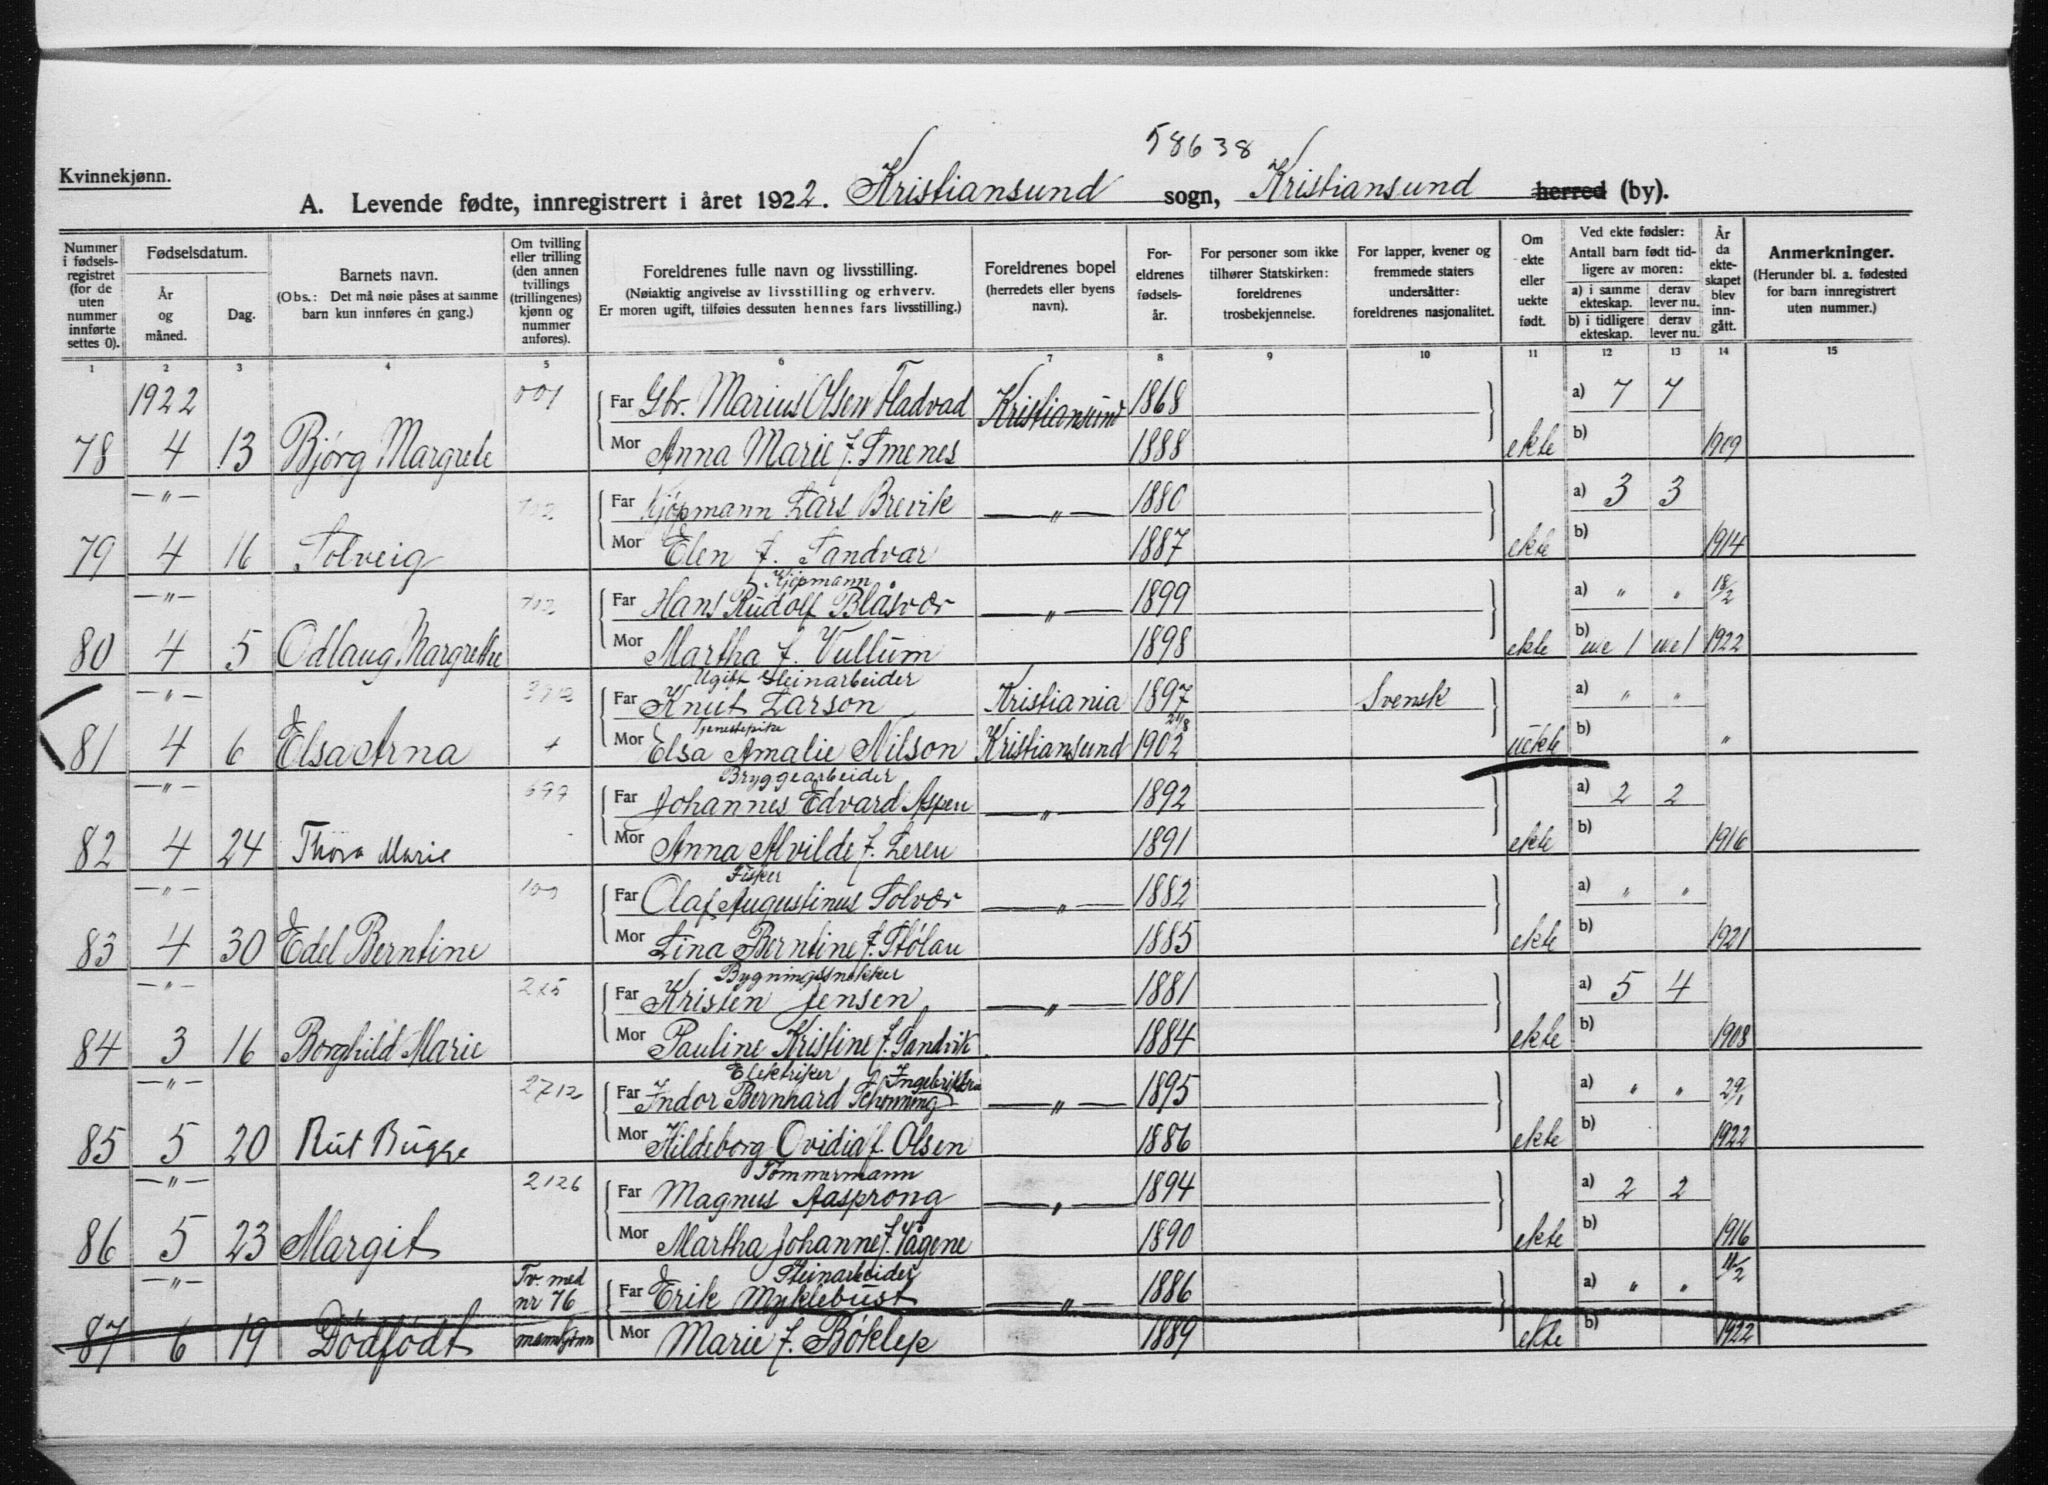 58638
Kvinnekjønn.
A. Levende fødte, innregistrert i året 1922. Kristiansund sogn, Kristiansund herred (by).
Nummer i fødsels-registret (for de uten nummer innførte settes 0).
Fødselsdatum.
År og måned.
Dag.
Barnets navn.
(Obs.: Det må nøie påses at samme barn kun innføres én gang.)
Om tvilling eller trilling (den annen tvillings (trillingenes) kjønn og nummer anføres).
Foreldrenes fulle navn og livsstilling.
(Nøiaktig angivelse av livsstilling og erhverv. Er moren ugift, tilføies dessuten hennes fars livsstilling.)
Foreldrenes bopel (herredets eller byens navn).
For-eldrenes fødsels-år.
For personer som ikke tilhører Statskirken: foreldrenes trosbekjennelse.
For lapper, kvener og fremmede staters undersåtter: foreldrenes nasjonalitet.
Om ekte eller uekte født.
Ved ekte fødsler: Antall barn født tid-ligere av moren:
a) i samme ekteskap. derav lever nu.
b) i tidligere ekteskap. derav lever nu.
År da ekte-skapet blev inn-gått.
Anmerkninger.
(Herunder bl. a. fødested for barn innregistrert uten nummer.)
1 2 3 4 5 6 7 8 9 10 11 12 13 14 15
1922 Far Gbr. Marius Olsen Fladvad Kristiansund 1868 a) 7 7
78 4 13 Bjørg Margrete Mor Anna Marie f. Smenes 1888 ekte b) 1909
—"— Far Kjøpmann Lars Brevik —"— 1880 a) 3 3
79 4 16 Solveig Mor Elen f. Sandvar 1887 ekte b) 1914
Kjøpmann
—"— Far Hans Rudolf Blåsvær —"— 1899 a) " " 18/2
80 4 5 Odlaug Margrethe Mor Martha f. Vullum 1898 ekte b) u.e 1 u.e 1 1922
Ugift Steinarbeider
—"— Far Knut Larson Kristiania 1897 Svensk a) " "
Tjenestepike 24/8
81 4 6 Elsa Arna + Mor Elsa Amalie Nilson Kristiansund 1902 uekte b) "
Bryggearbeider
—"— 699 Far Johannes Edvard Aspen —"— 1892 a) 2 2
82 4 24 Thora Marie Mor Anna Alvilde f. Leren 1891 ekte b) 1916
Fisker
—"— Far Olaf Augustinus Solvær —"— 1882 a) " "
83 4 30 Edel Berntine Mor Lina Berntine f. Stølan 1885 ekte b) 1921
Bygningssnekker
—"— 225 Far Kristen Jensen —"— 1881 a) 5 4
84 3 16 Borghild Marie Mor Pauline Kristine f. Sandvik 1884 ekte b) 1908
Elektriker Ingebriktsen
—"— 2712 Far Indor Bernhard Schonning —"— 1895 a) " " 29/1
85 5 20 Rut Bugge Mor Hildeborg Ovidia f. Olsen 1886 ekte b) 1922
Tømmermann
—"— 2126 Far Magnus Aasprong —"— 1894 a) 2 2
86 5 23 Margit Mor Martha Johanne f. Vågene 1890 ekte b) 1916
Steinarbeider
—"— Tv. med nr 76 Far Erik Myklebust —"— 1886 a) " " 11/2
87 6 19 Dødfødt mannkjønn Mor Marie f. Bøklep 1889 ekte b) 1922